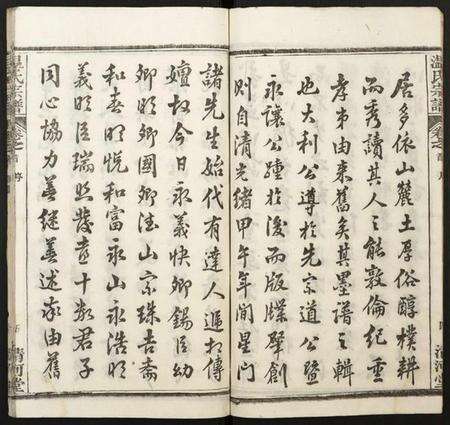 温氏宗譜
居多依山麓土厚俗醇樸耕
而秀讀其人之能敦倫紀重
孝弟由來舊矣其墨譜之輯
也大利公遵於先宗道公暨
永讓公繼於後而版牒肇創
則自清光緒甲午年間星門
清河堂
諸先生始代有達人遞相傳
嬗故今日永義快卿錫臣幼
卿明卿國卿法山宗珠吉齋
和春明悅和富永山永浩明
義明臣瑞照發壹十數君子
同心協力善繼善述率由舊
温氏宗譜
清河堂